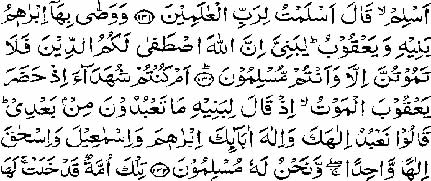 اَسۡلِمۡۙ قَالَ اَسۡلَمۡتُ لِرَبِّ الۡعٰلَمِيۡنَ ﴿۱۳۱﴾ وَوَصّٰى بِهَآ اِبۡرٰهٖمُ
بَنِيۡهِ وَ يَعۡقُوۡبُؕ يٰبَنِىَّ اِنَّ اللّٰهَ اصۡطَفٰى لَـكُمُ الدِّيۡنَ فَلَا
تَمُوۡتُنَّ اِلَّا وَاَنۡتُمۡ مُّسۡلِمُوۡنَؕ ﴿۱۳۲﴾ اَمۡ كُنۡتُمۡ شُهَدَآءَ اِذۡ حَضَرَ
يَعۡقُوۡبَ الۡمَوۡتُۙ اِذۡ قَالَ لِبَنِيۡهِ مَا تَعۡبُدُوۡنَ مِنۡۢ بَعۡدِىۡؕ
قَالُوۡا نَعۡبُدُ اِلٰهَكَ وَاِلٰهَ اٰبَآئِكَ اِبۡرٰهٖمَ وَاِسۡمٰعِيۡلَ وَاِسۡحٰقَ
اِلٰهًا وَّاحِدًا ۖۚ وَّنَحۡنُ لَهٗ مُسۡلِمُوۡنَ ﴿۱۳۳﴾ تِلۡكَ اُمَّةٌ قَدۡ خَلَتۡۚ لَهَا